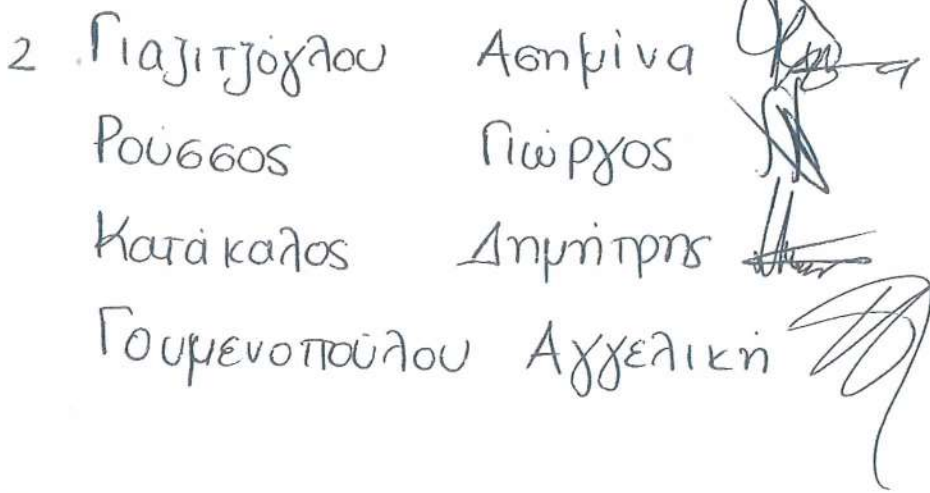 2 Γιαζιτζόγλου Ασημίνα
Ρούσσος Γιώργος
Κατάκαλος Δημήτρης
Γουμενοπούλου Αγγελική